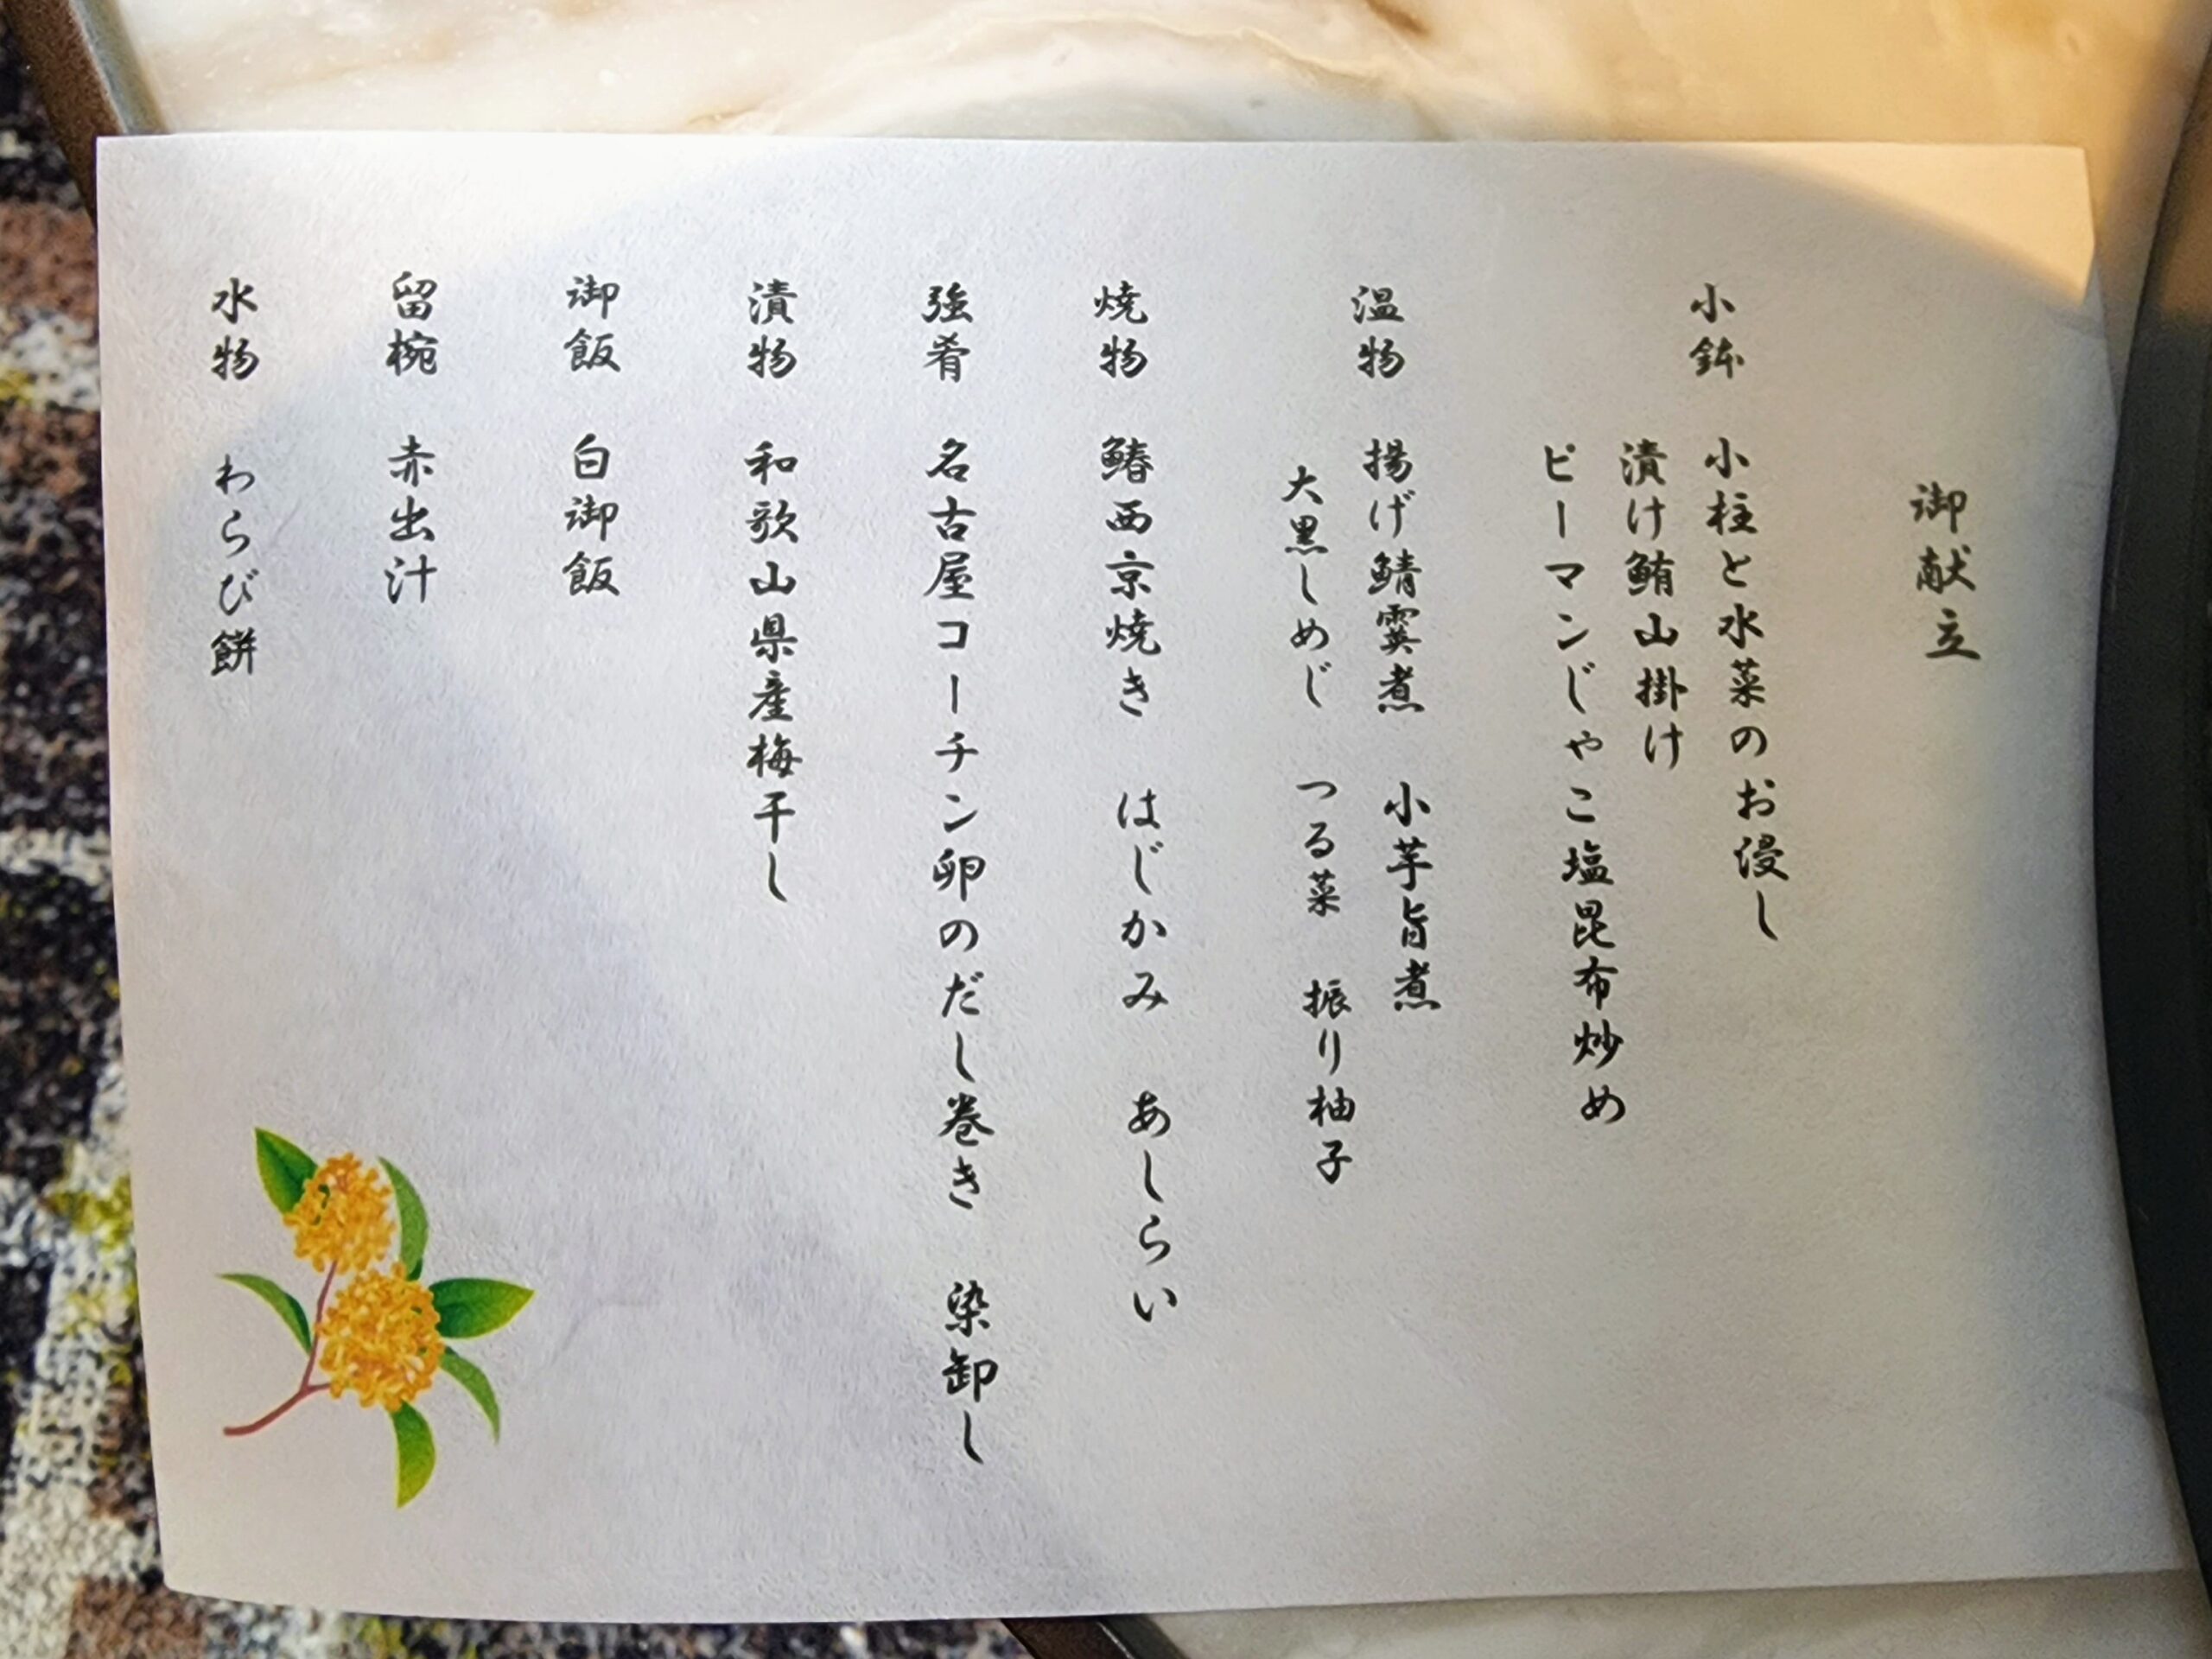 御献立
小鉢　小柱と水菜のお浸し
漬け鮪山掛け
ピーマンじゃこ塩昆布炒め
温物　揚げ鯖霙煮　小芋旨煮
大黒しめじ　つる菜　振り柚子
焼物　鰆西京焼き　はじかみ　あしらい
強肴　名古屋コーチン卵のだし巻き　染卸し
漬物　和歌山県産梅干し
御飯　白御飯
留椀　赤出汁
水物　わらび餅